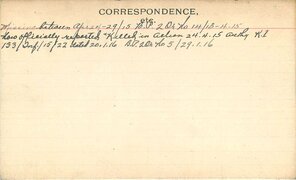 CORRESPONDENCE.
Missing between Apr 24-29/15 B.F. 2 Dr. No 14/18-4-15
Now officially reported "Killed in Action 24.4.15 Authy H.2
133/Inf/15/22 dated 20.1.16 B.F. 2 Dr No 5/29.1.16